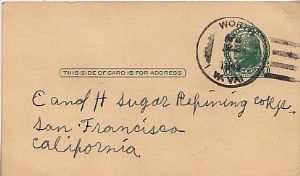 WORTH
W.VA.
THIS SIDE OF CARD IS FOR ADDRESS
C and H Sugar Refining Corp.
San Francisco
California